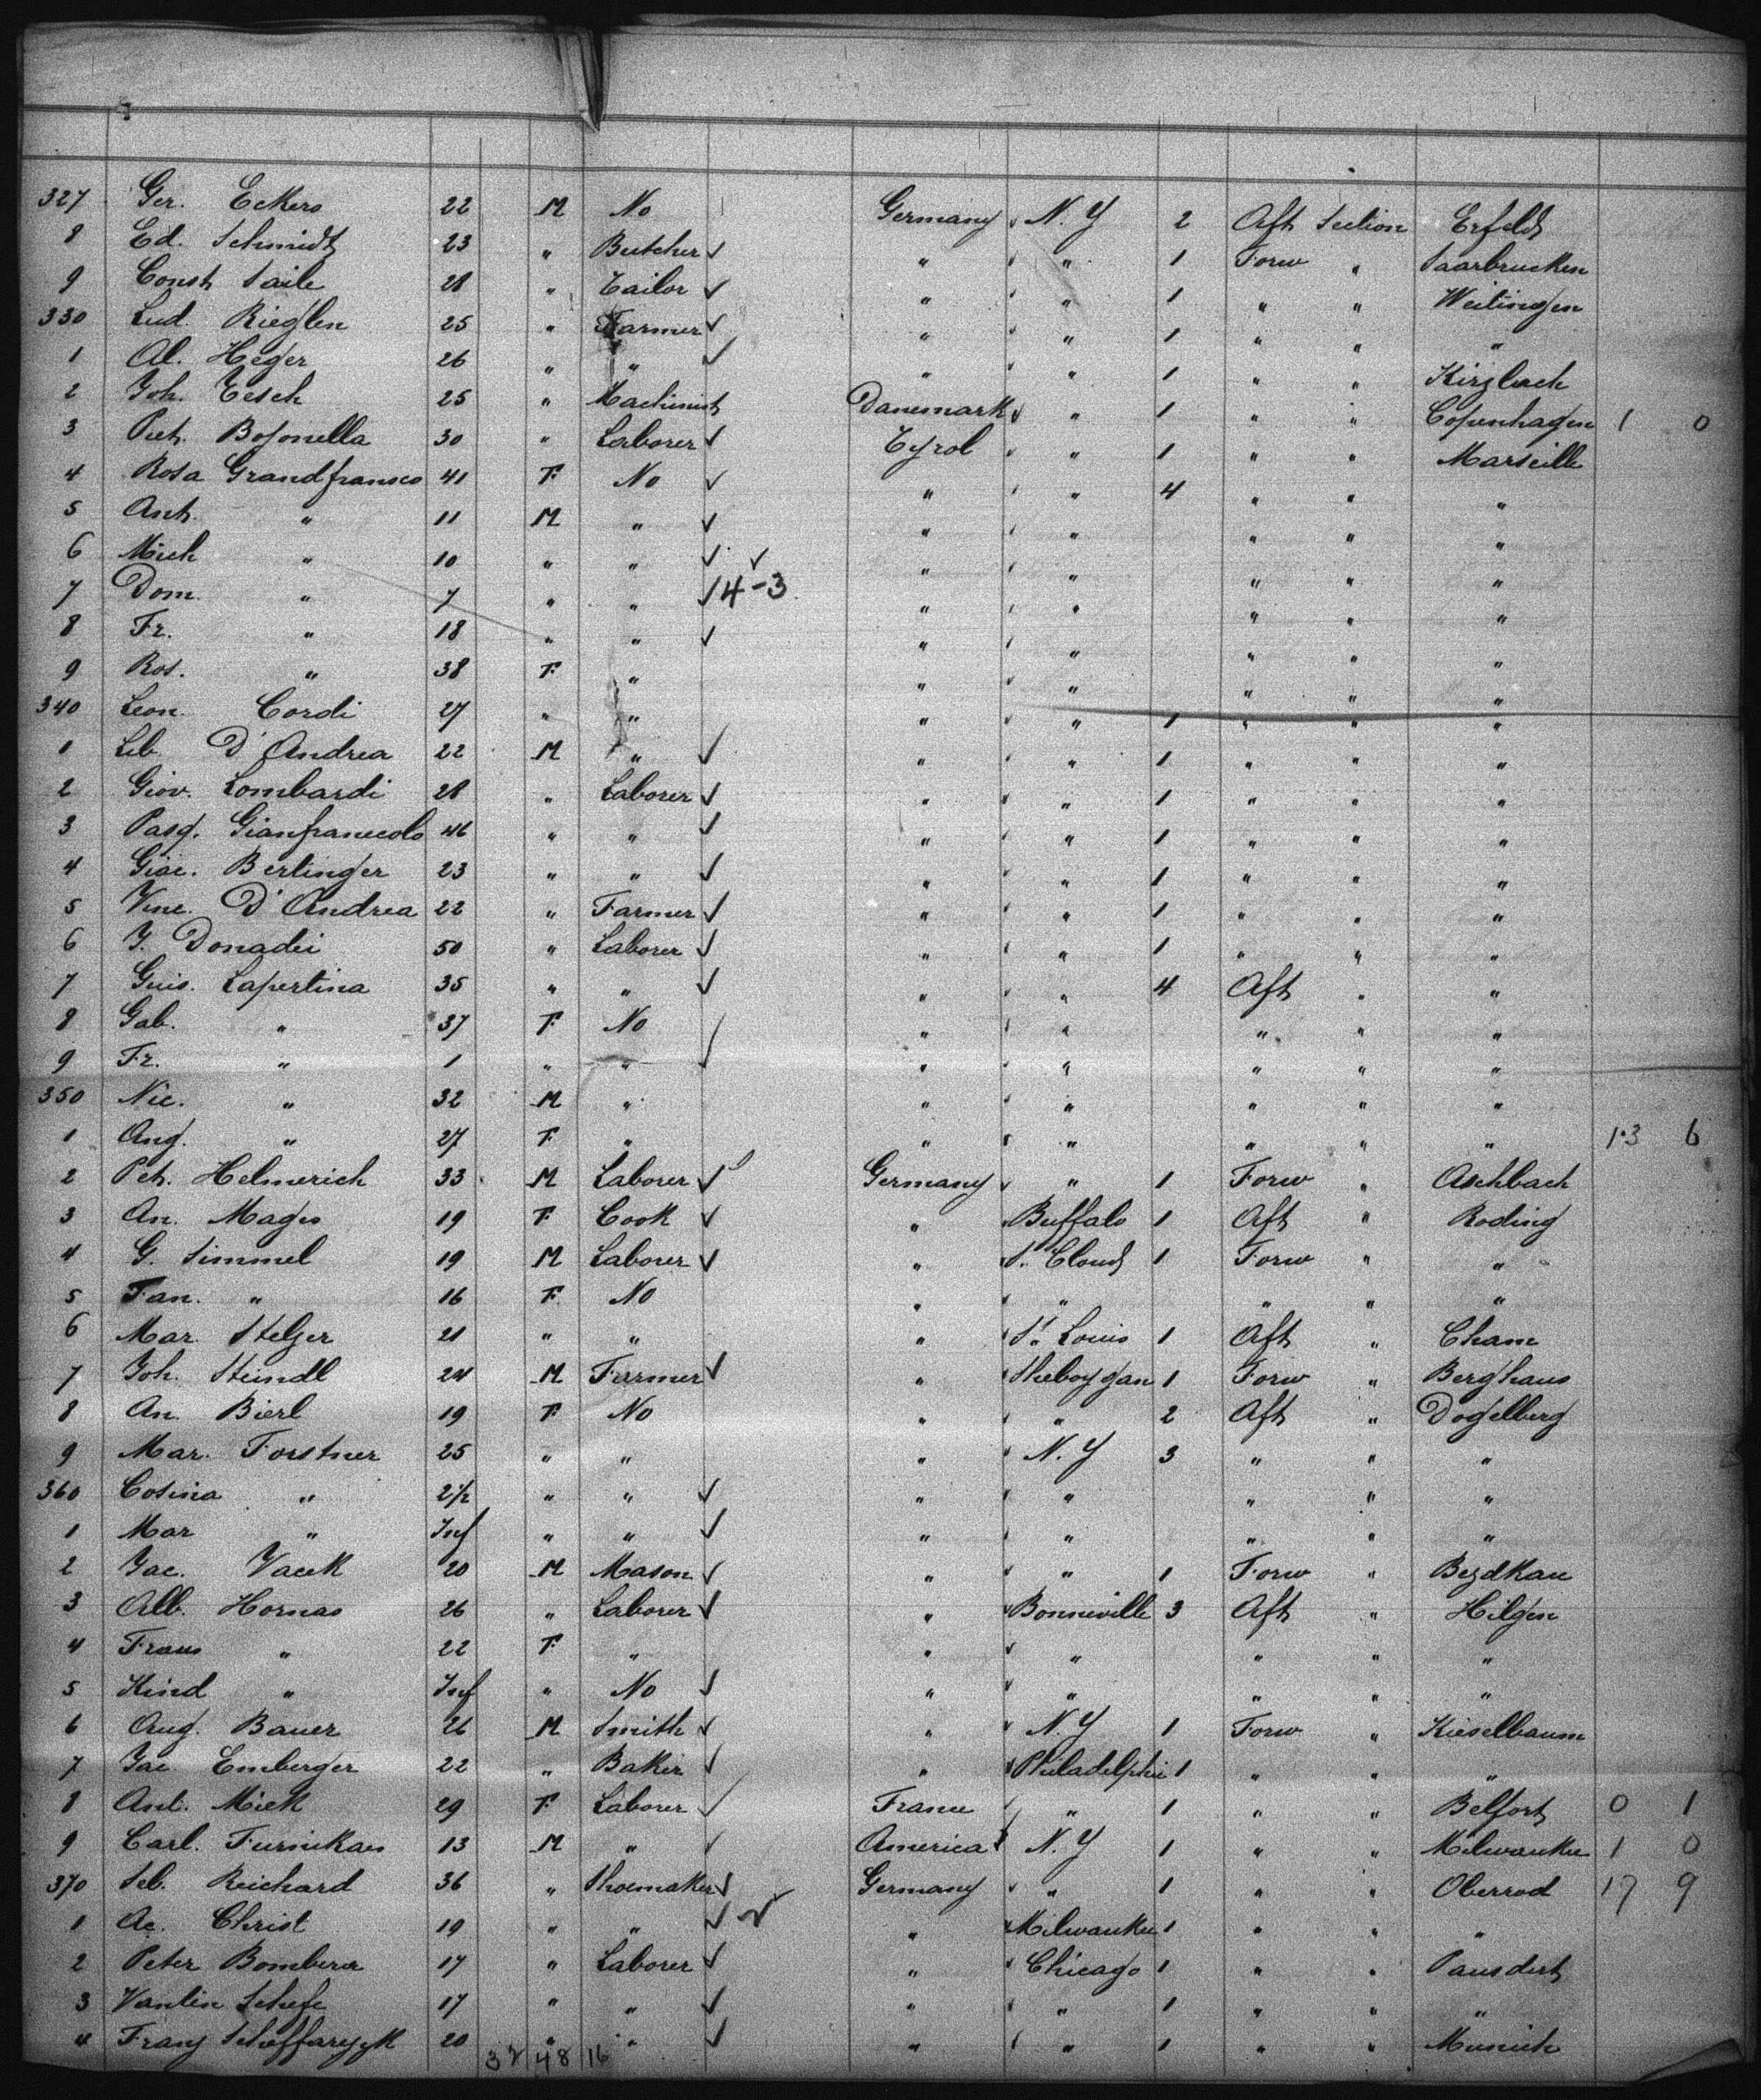 327 Ger. Eckers 22 M No Germany N.Y 2 Aft Section Erfeld
8 Ed. Schmidt 23 " Butcher " " 1 Forw " Saarbrucken
9 Const Saile 28 " Tailor " " 1 " " Weitingen
330 Lud. Rieglen 25 " Farmer " " 1 " " "
1 Al. Heger 26 " " " " 1 " " Kirzbach
2 Joh. Tesch 25 " Machinist Danemark " 1 " " Copenhagen 1 0
3 Piet. Bosonella 30 " Laborer Tyrol " 1 " " Marseille
4 Rosa Grandfransco 41 F No " " 4 " " "
5 Ant. " 11 M " " " " " "
6 Mich " 10 " " " " " " "
7 Dom. " 7 " " 4-3 " " " " "
8 Fr. " 18 " " " " " " "
9 Ros. " 38 F " " " " " "
340 Leon. Cordi 27 " " " " 1 " " "
1 Lib D'Andrea 22 M " " " 1 " " "
2 Giov. Lombardi 28 " Laborer " " 1 " " "
3 Pasq. Gianfrancolo 46 " " " " 1 " " "
4 Giac. Berlinger 23 " " " " 1 " " "
5 Vinc. D'Andrea 22 " Farmer " " 1 " " "
6 J. Donadii 50 " Laborer " " 1 " " "
7 Guis. Lapertina 35 " " " " 4 Aft " "
8 Gab. " 37 F No " " " " "
9 Fr. " 1 " " " " " " "
350 Nic. " 32 M " " " " " "
1 Ang. " 27 F " " " " " " 13 6
2 Pet. Helmerich 33 M Laborer Germany " 1 Forw " Aschbach
3 An. Mages 19 F Cook " Buffalo 1 Aft " Roding
4 G. Simmel 19 M Laborer " St. Cloud 1 Forw " "
5 Fan. " 16 F No " " " " "
6 Mar. Stelzer 21 " " " St. Louis 1 Aft " Cham
7 Joh. Steindl 24 M Farmer " Sheboygan 1 Forw " Berghaus
8 An. Bierl 19 F No " " 2 Aft " Dogelberg
9 Mar. Forstner 25 " " " N.Y 3 " " "
360 Cosina " 2½ " " " " " " "
1 Mar " Inf " " " " " " "
2 Jac. Vacek 20 M Mason " " 1 Forw " Bezdkau
3 Alb. Hornas 26 " Laborer " Bonneville 3 Aft " Hilgen
4 Frans " 22 F " " " " " "
5 Kind " Inf " No " " " " "
6 Aug. Bauer 26 M Smith " N.Y 1 Forw " Kieselbaum
7 Jac Emberger 22 " Baker " Philadelphia 1 " " "
8 Ant. Miek 29 F Laborer France " 1 " " Belfort 0 1
9 Carl. Furnikas 13 M " America N.Y 1 " " Milwaukee 1 0
370 Seb. Reichard 36 " Shoemaker Germany " 1 " " Oberrod 17 9
1 Ac. Christ 19 " " " Milwaukee 1 " " "
2 Peter Bombera 17 " Laborer " Chicago 1 " " Pausdert
3 Vantin Schefe 17 " " " " 1 " " "
4 Franz 20 " " " " 1 " " Munich
32 48 16